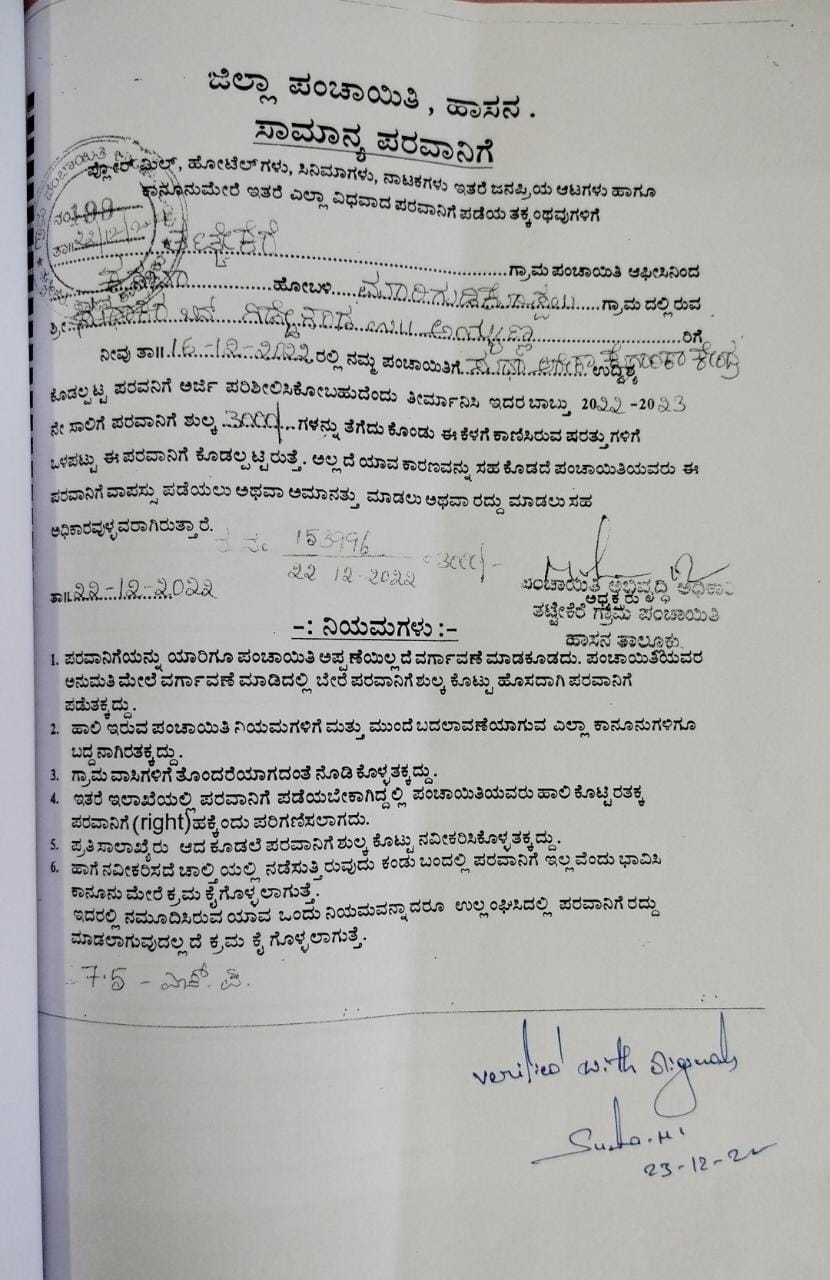 ಜಿಲ್ಲಾ ಪಂಚಾಯಿತಿ, ಹಾಸನ.
ಸಾಮಾನ್ಯ ಪರವಾನಿಗೆ
ಪ್ಲೋರ್‌ಮಿಲ್, ಹೋಟೆಲ್‌ಗಳು, ಸಿನಿಮಾಗಳು, ನಾಟಕಗಳು ಇತರೆ ಜನಪ್ರಿಯ ಆಟಗಳು ಹಾಗೂ
ಕಾನೂನುಮೇರೆ ಇತರೆ ಎಲ್ಲಾ ವಿಧವಾದ ಪರವಾನಿಗೆ ಪಡೆಯ ತಕ್ಕಂಥವುಗಳಿಗೆ
ನಂ 199
ತಾ॥ 22/12/2
ತಟ್ಟೇಕೆರೆ ಗ್ರಾಮ ಪಂಚಾಯಿತಿ ಆಫೀಸಿನಿಂದ
ಹೋಬಳಿ ಗ್ರಾಮದಲ್ಲಿರುವ
ಶ್ರೀ ಬಿನ್ ರಿಗೆ
ನೀವು ತಾ॥ 16-12-2022 ರಲ್ಲಿ ನಮ್ಮ ಪಂಚಾಯಿತಿಗೆ ಉದ್ದಿಶ್ಯ
ಕೊಡಲ್ಪಟ್ಟ ಪರವನಿಗೆ ಅರ್ಜಿ ಪರಿಶೀಲಿಸಿಕೋಬಹುದೆಂದು ತೀರ್ಮಾನಿಸಿ ಇದರ ಬಾಬ್ತು 2022-2023
ನೇ ಸಾಲಿಗೆ ಪರವಾನಿಗೆ ಶುಲ್ಕ 3000/- ಗಳನ್ನು ತೆಗೆದುಕೊಂಡು ಈ ಕೆಳಗೆ ಕಾಣಿಸಿರುವ ಷರತ್ತುಗಳಿಗೆ
ಒಳಪಟ್ಟು ಈ ಪರವಾನಿಗೆ ಕೊಡಲ್ಪಟ್ಟಿರುತ್ತೆ. ಅಲ್ಲದೆ ಯಾವ ಕಾರಣವನ್ನು ಸಹ ಕೊಡದೆ ಪಂಚಾಯಿತಿಯವರು ಈ
ಪರವಾನಿಗೆ ವಾಪಸ್ಸು ಪಡೆಯಲು ಅಥವಾ ಅಮಾನತ್ತು ಮಾಡಲು ಅಥವಾ ರದ್ದು ಮಾಡಲು ಸಹ
ಅಧಿಕಾರವುಳ್ಳವರಾಗಿರುತ್ತಾರೆ.
ರ ನಂ 153996 3000/-
22 12-2022
ತಾ॥ 22-12-2022
ಪಂಚಾಯಿತಿ ಅಭಿವೃದ್ಧಿ ಅಧಿಕಾರಿ
ಅಧ್ಯಕ್ಷರು
ತಟ್ಟೇಕೆರೆ ಗ್ರಾಮ ಪಂಚಾಯಿತಿ
ಹಾಸನ ತಾಲ್ಲೂಕು
-: ನಿಯಮಗಳು :-
1. ಪರವಾನಿಗೆಯನ್ನು ಯಾರಿಗೂ ಪಂಚಾಯಿತಿ ಅಪ್ಪಣೆಯಿಲ್ಲದೆ ವರ್ಗಾವಣೆ ಮಾಡಕೂಡದು. ಪಂಚಾಯಿತಿಯವರ
ಅನುಮತಿ ಮೇಲೆ ವರ್ಗಾವಣೆ ಮಾಡಿದಲ್ಲಿ ಬೇರೆ ಪರವಾನಿಗೆ ಶುಲ್ಕ ಕೊಟ್ಟು ಹೊಸದಾಗಿ ಪರವಾನಿಗೆ
ಪಡೆತಕ್ಕದ್ದು.
2. ಹಾಲಿ ಇರುವ ಪಂಚಾಯಿತಿ ನಿಯಮಗಳಿಗೆ ಮತ್ತು ಮುಂದೆ ಬದಲಾವಣೆಯಾಗುವ ಎಲ್ಲಾ ಕಾನೂನುಗಳಿಗೂ
ಬದ್ದನಾಗಿರತಕ್ಕದ್ದು.
3. ಗ್ರಾಮ ವಾಸಿಗಳಿಗೆ ತೊಂದರೆಯಾಗದಂತೆ ನೊಡಿ ಕೊಳ್ಳತಕ್ಕದ್ದು.
4. ಇತರೆ ಇಲಾಖೆಯಲ್ಲಿ ಪರವಾನಿಗೆ ಪಡೆಯಬೇಕಾಗಿದ್ದಲ್ಲಿ ಪಂಚಾಯಿತಿಯವರು ಹಾಲಿ ಕೊಟ್ಟಿರತಕ್ಕ
ಪರವಾನಿಗೆ (right) ಹಕ್ಕೆಂದು ಪರಿಗಣಿಸಲಾಗದು.
5. ಪ್ರತಿಸಾಲಾಖೈರು ಆದ ಕೂಡಲೆ ಪರವಾನಿಗೆ ಶುಲ್ಕ ಕೊಟ್ಟು ನವೀಕರಿಸಿಕೊಳ್ಳತಕ್ಕದ್ದು.
6. ಹಾಗೆ ನವೀಕರಿಸದೆ ಚಾಲ್ತಿಯಲ್ಲಿ ನಡೆಸುತ್ತಿರುವುದು ಕಂಡು ಬಂದಲ್ಲಿ ಪರವಾನಿಗೆ ಇಲ್ಲವೆಂದು ಭಾವಿಸಿ
ಕಾನೂನು ಮೇರೆ ಕ್ರಮ ಕೈಗೊಳ್ಳಲಾಗುತ್ತೆ.
ಇದರಲ್ಲಿ ನಮೂದಿಸಿರುವ ಯಾವ ಒಂದು ನಿಯಮವನ್ನಾದರೂ ಉಲ್ಲಂಘಿಸಿದಲ್ಲಿ ಪರವಾನಿಗೆ ರದ್ದು
ಮಾಡಲಾಗುವುದಲ್ಲದೆ ಕ್ರಮ ಕೈಗೊಳ್ಳಲಾಗುತ್ತೆ.
7.5 - ಎಚ್.ಪಿ.
verified with originals
23-12-22